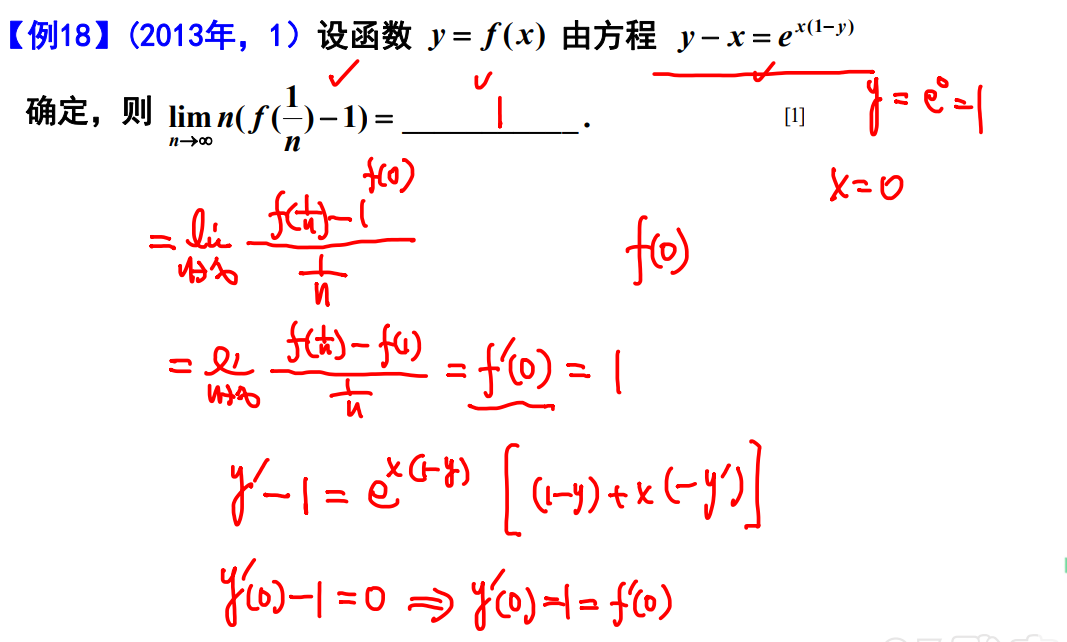 【例18】(2013年, 1) 设函数 y = f(x) 由方程 y − x = e^{x(1−y)}
确定, 则 lim_{n→∞} n(f(1/n) − 1) = ___1___ . [1] y = e^0 = 1
x = 0
f(0)
= lim_{n→∞} (f(1/n) − 1)/(1/n) f(0)
= lim_{n→∞} (f(1/n) − f(1))/(1/n) = f′(0) = 1
y′ − 1 = e^{x(1−y)} [(1−y) + x(−y′)]
y′(0) − 1 = 0 ⇒ y′(0) = 1 = f′(0)